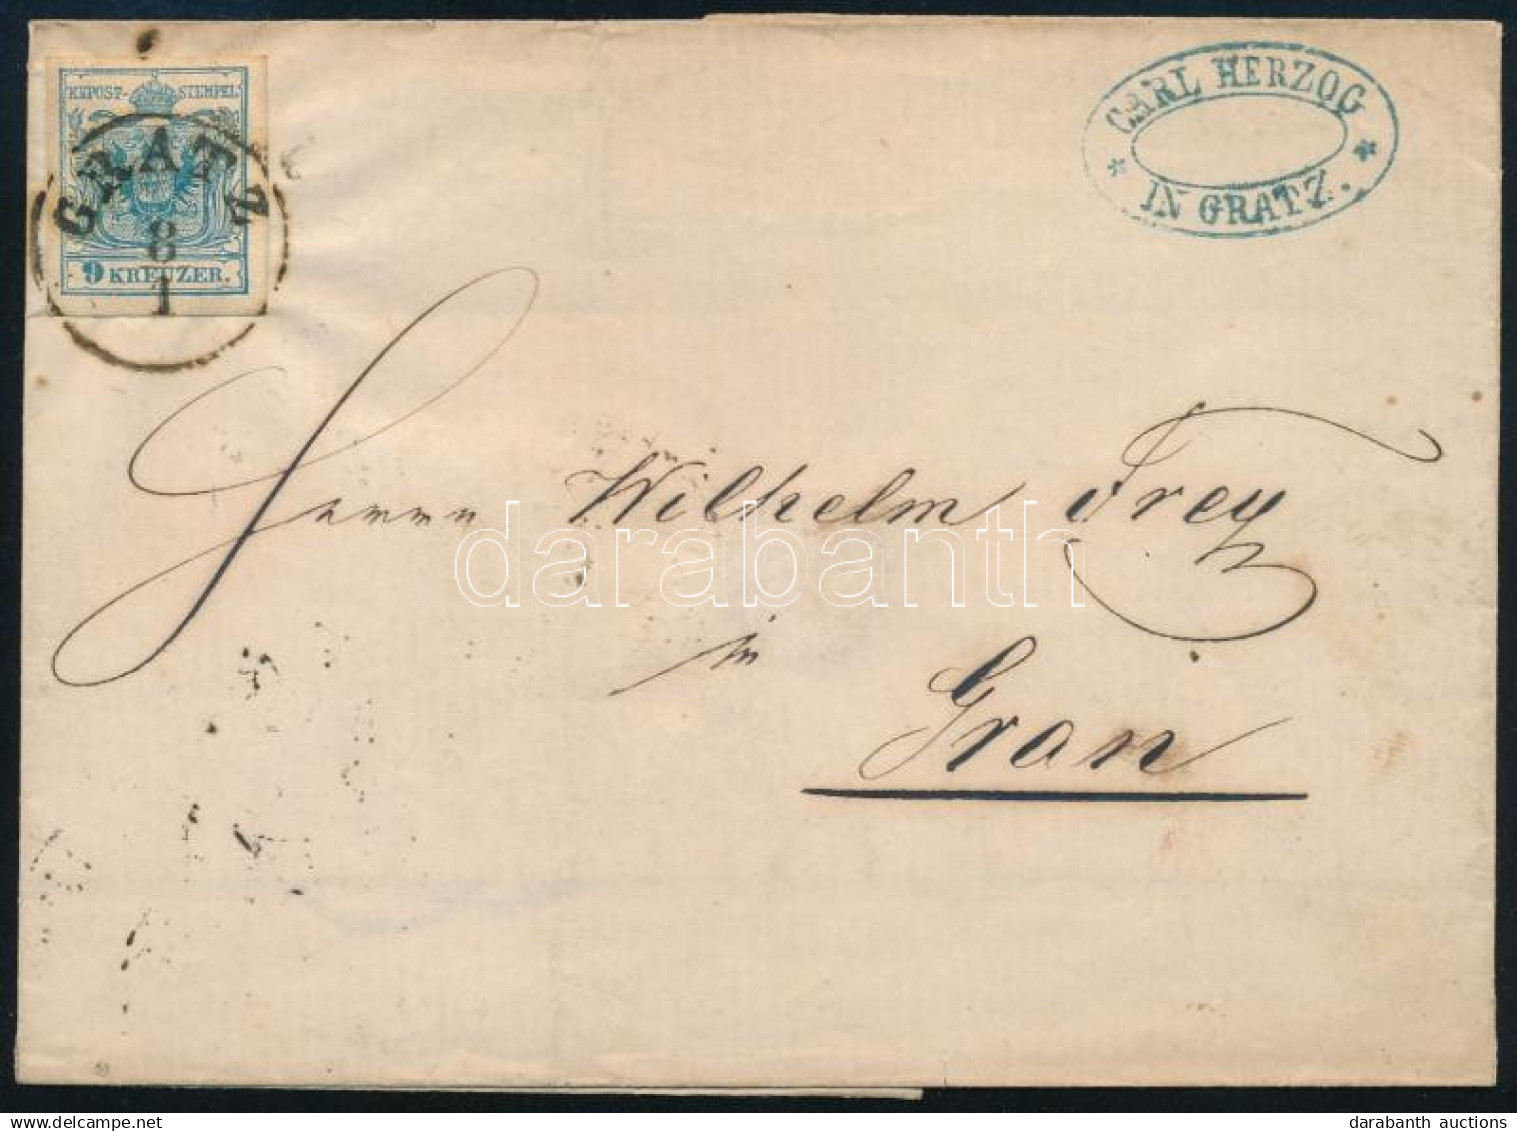 KKPOST-STEMPEL
9 KREUZER.
GRATZ
8
1
CARL HERZOG
IN GRATZ.
Herrn Wilhelm Frey
in
Gran
darabanth
darabanth auctions